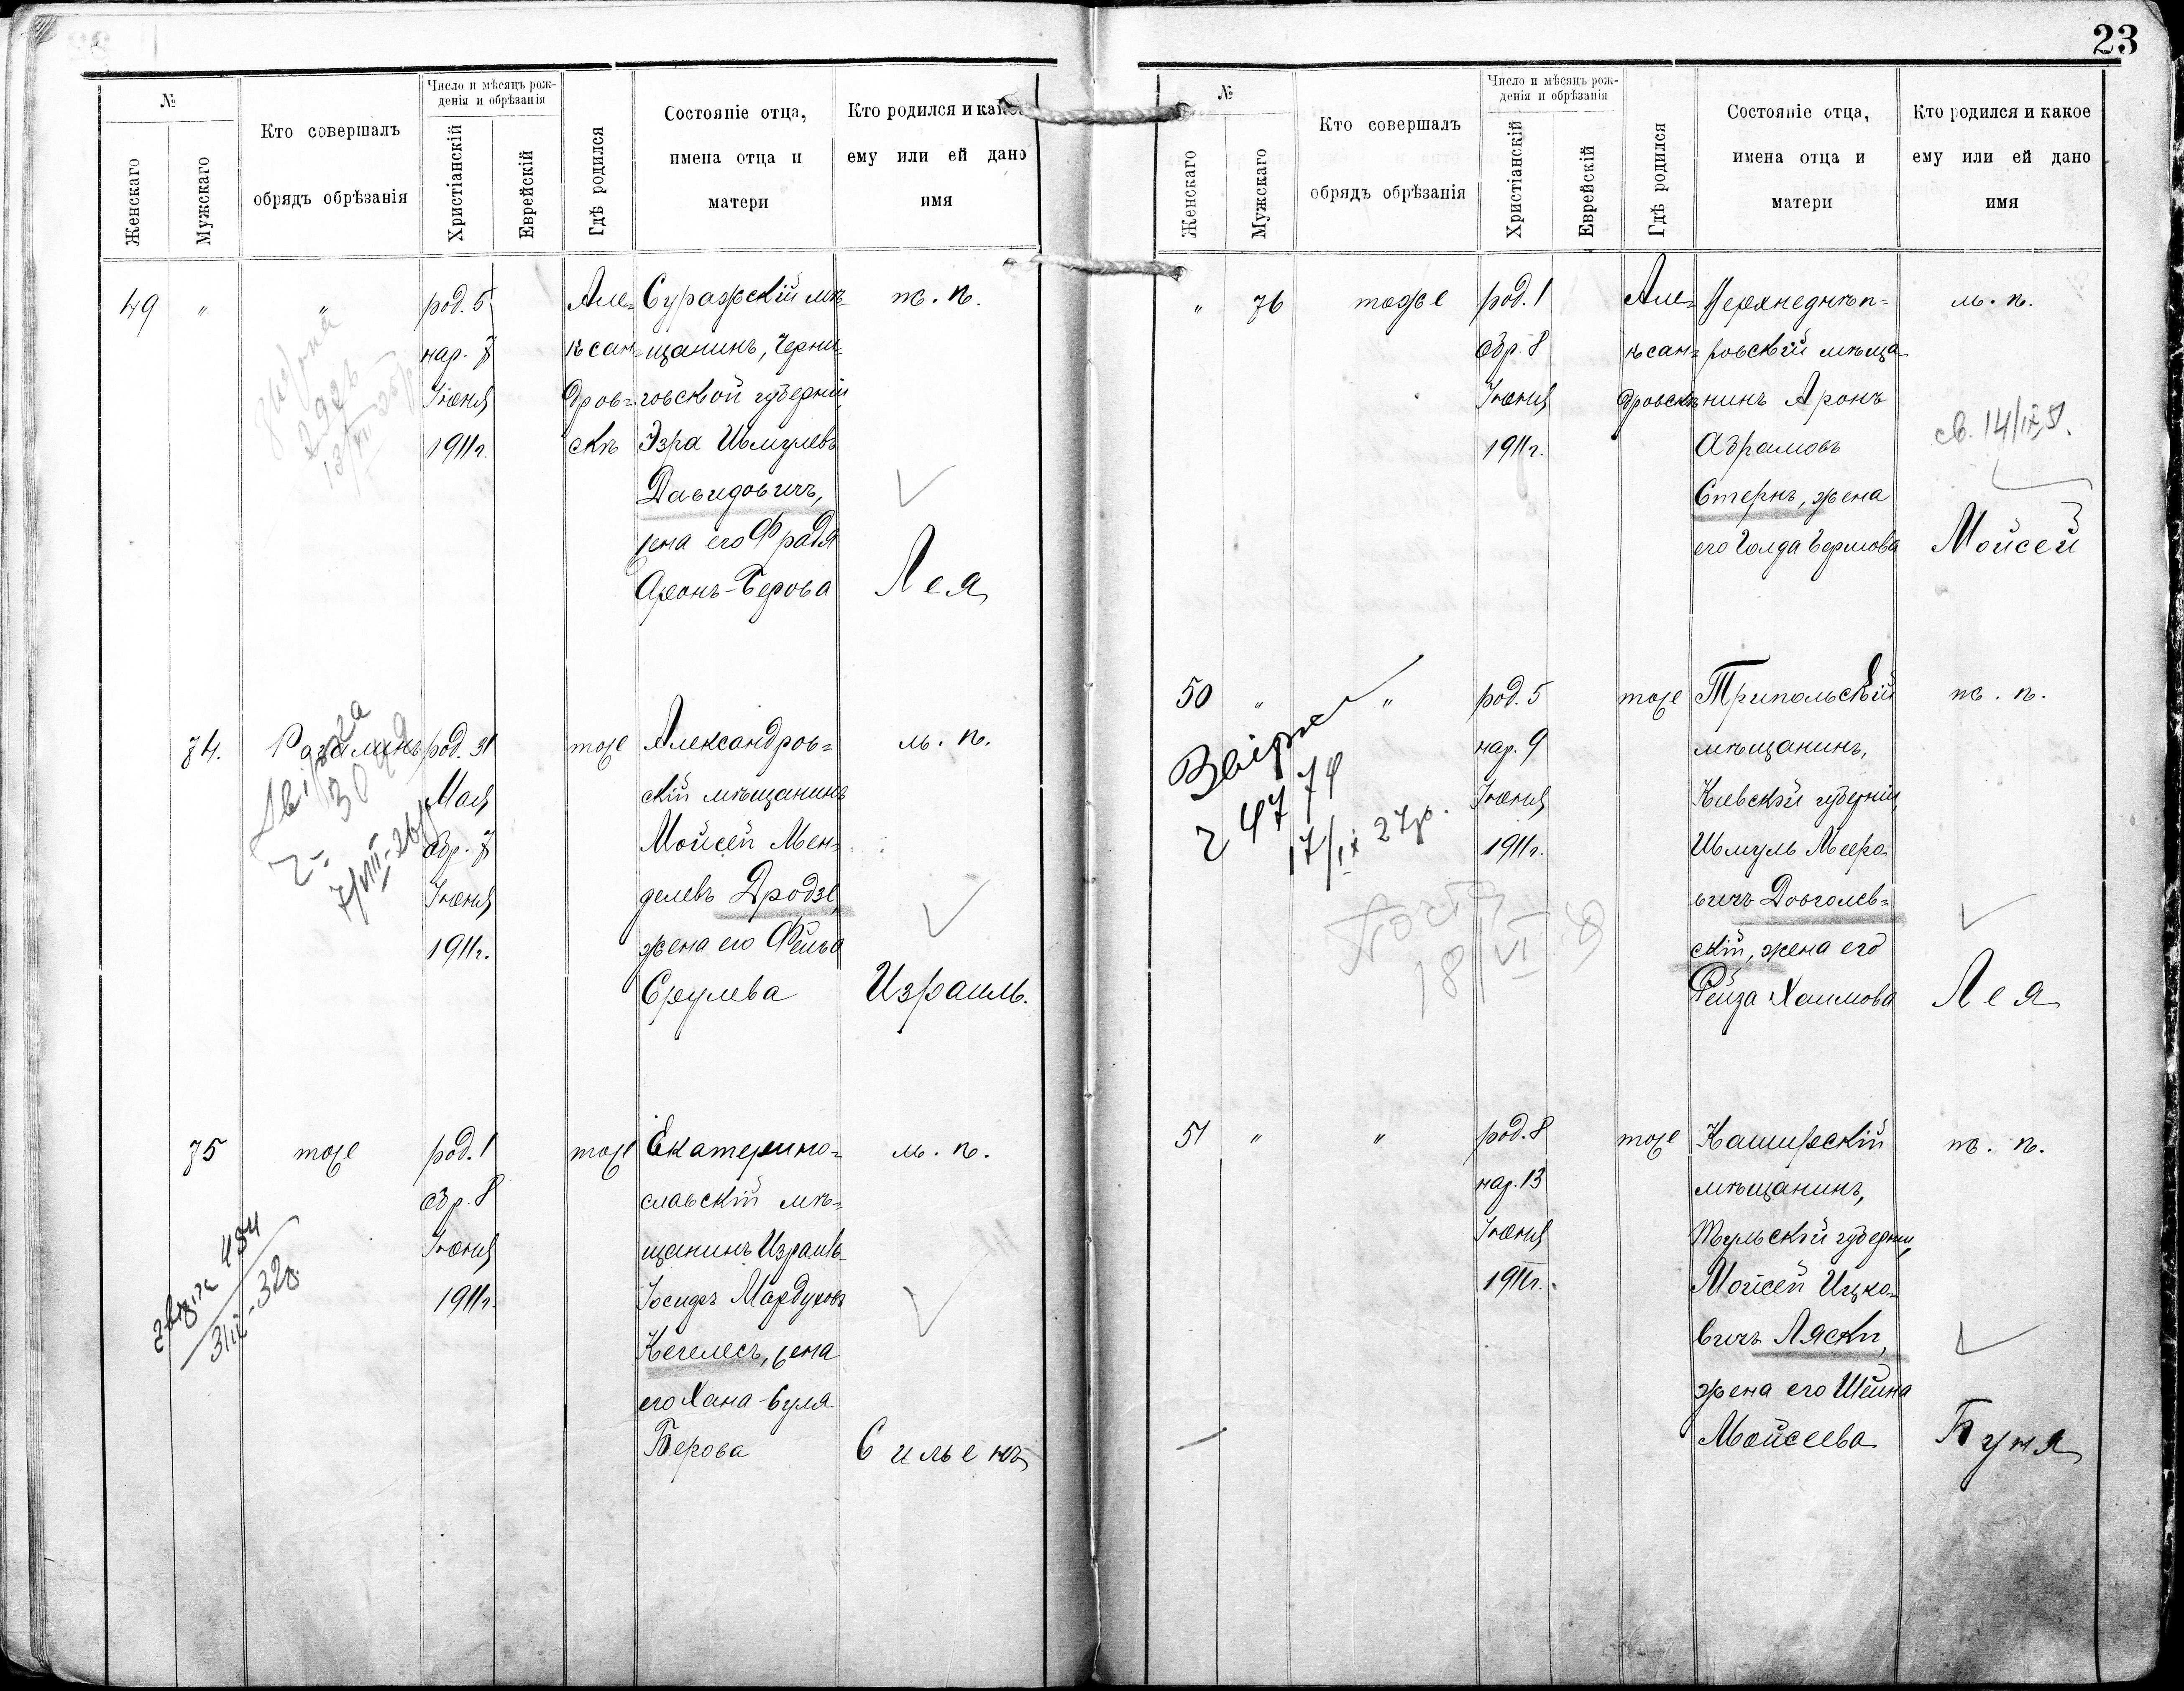 23
№
Женскаго
Мужскаго
Кто совершалъ
обрядъ обрѣзанія
Число и мѣсяцъ рож-
денія и обрѣзанія
Христіанскій
Еврейскій
Гдѣ родился
Состояніе отца,
имена отца и
матери
Кто родился и какое
ему или ей дано
имя
49 " "
род. 5
нар. 7
Іюня
1911 г.
Але=
ксан=
дров=
скѣ
Суражскій мѣ
щанинъ, Черни=
говской губерніи,
Эзра Шмулевъ
Давидовичъ,
жена его Фрадя
Аронъ-Берова
ж. п.
Лея
74.
Рагалинъ
род. 31
Мая
обр. 7
Іюня
1911 г.
тоже
Александров=
скій мѣщанинъ
Мойсей Мен=
делевъ Дродзе,
жена его Фейга
Срулева
м. п.
Израиль.
30
7/VIII-26
75
тоже
род. 1
обр. 8
Іюня
1911 г.
тоже
Екатерино=
славскій мѣ=
щанинъ Израиль
Іосифъ Мардуховъ
Кегелесъ, жена
его Хана-Буля
Берова
м. п.
Сильенъ
№
Женскаго
Мужскаго
Кто совершалъ
обрядъ обрѣзанія
Число и мѣсяцъ рож-
денія и обрѣзанія
Христіанскій
Еврейскій
Гдѣ родился
Состояніе отца,
имена отца и
матери
Кто родился и какое
ему или ей дано
имя
" 76
тоже
род. 1
обр. 8
Іюня
1911 г.
Але=
ксан=
дровскѣ
Верхнеднѣп=
ровскій мѣща
нинъ Аронъ
Абрамовъ
Стернъ, жена
его Голда Берлова
м. п.
Мойсей
50 " "
род. 5
нар. 9
Іюня
1911 г.
тоже
Трипольскій
мѣщанинъ,
Кіевской губерніи,
Шмуль Мееро
вичъ Довголев=
скій, жена его
Рейза Хаимова
ж. п.
Лея
17/IX 27р.
18 VI
51 " "
род. 8
нар. 13
Іюня
1911 г.
тоже
Каширскій
мѣщанинъ,
Тульской губерніи,
Мойсей Ицко
вичъ Ляски,
жена его Шейна
Мойсеева
ж. п.
Буня